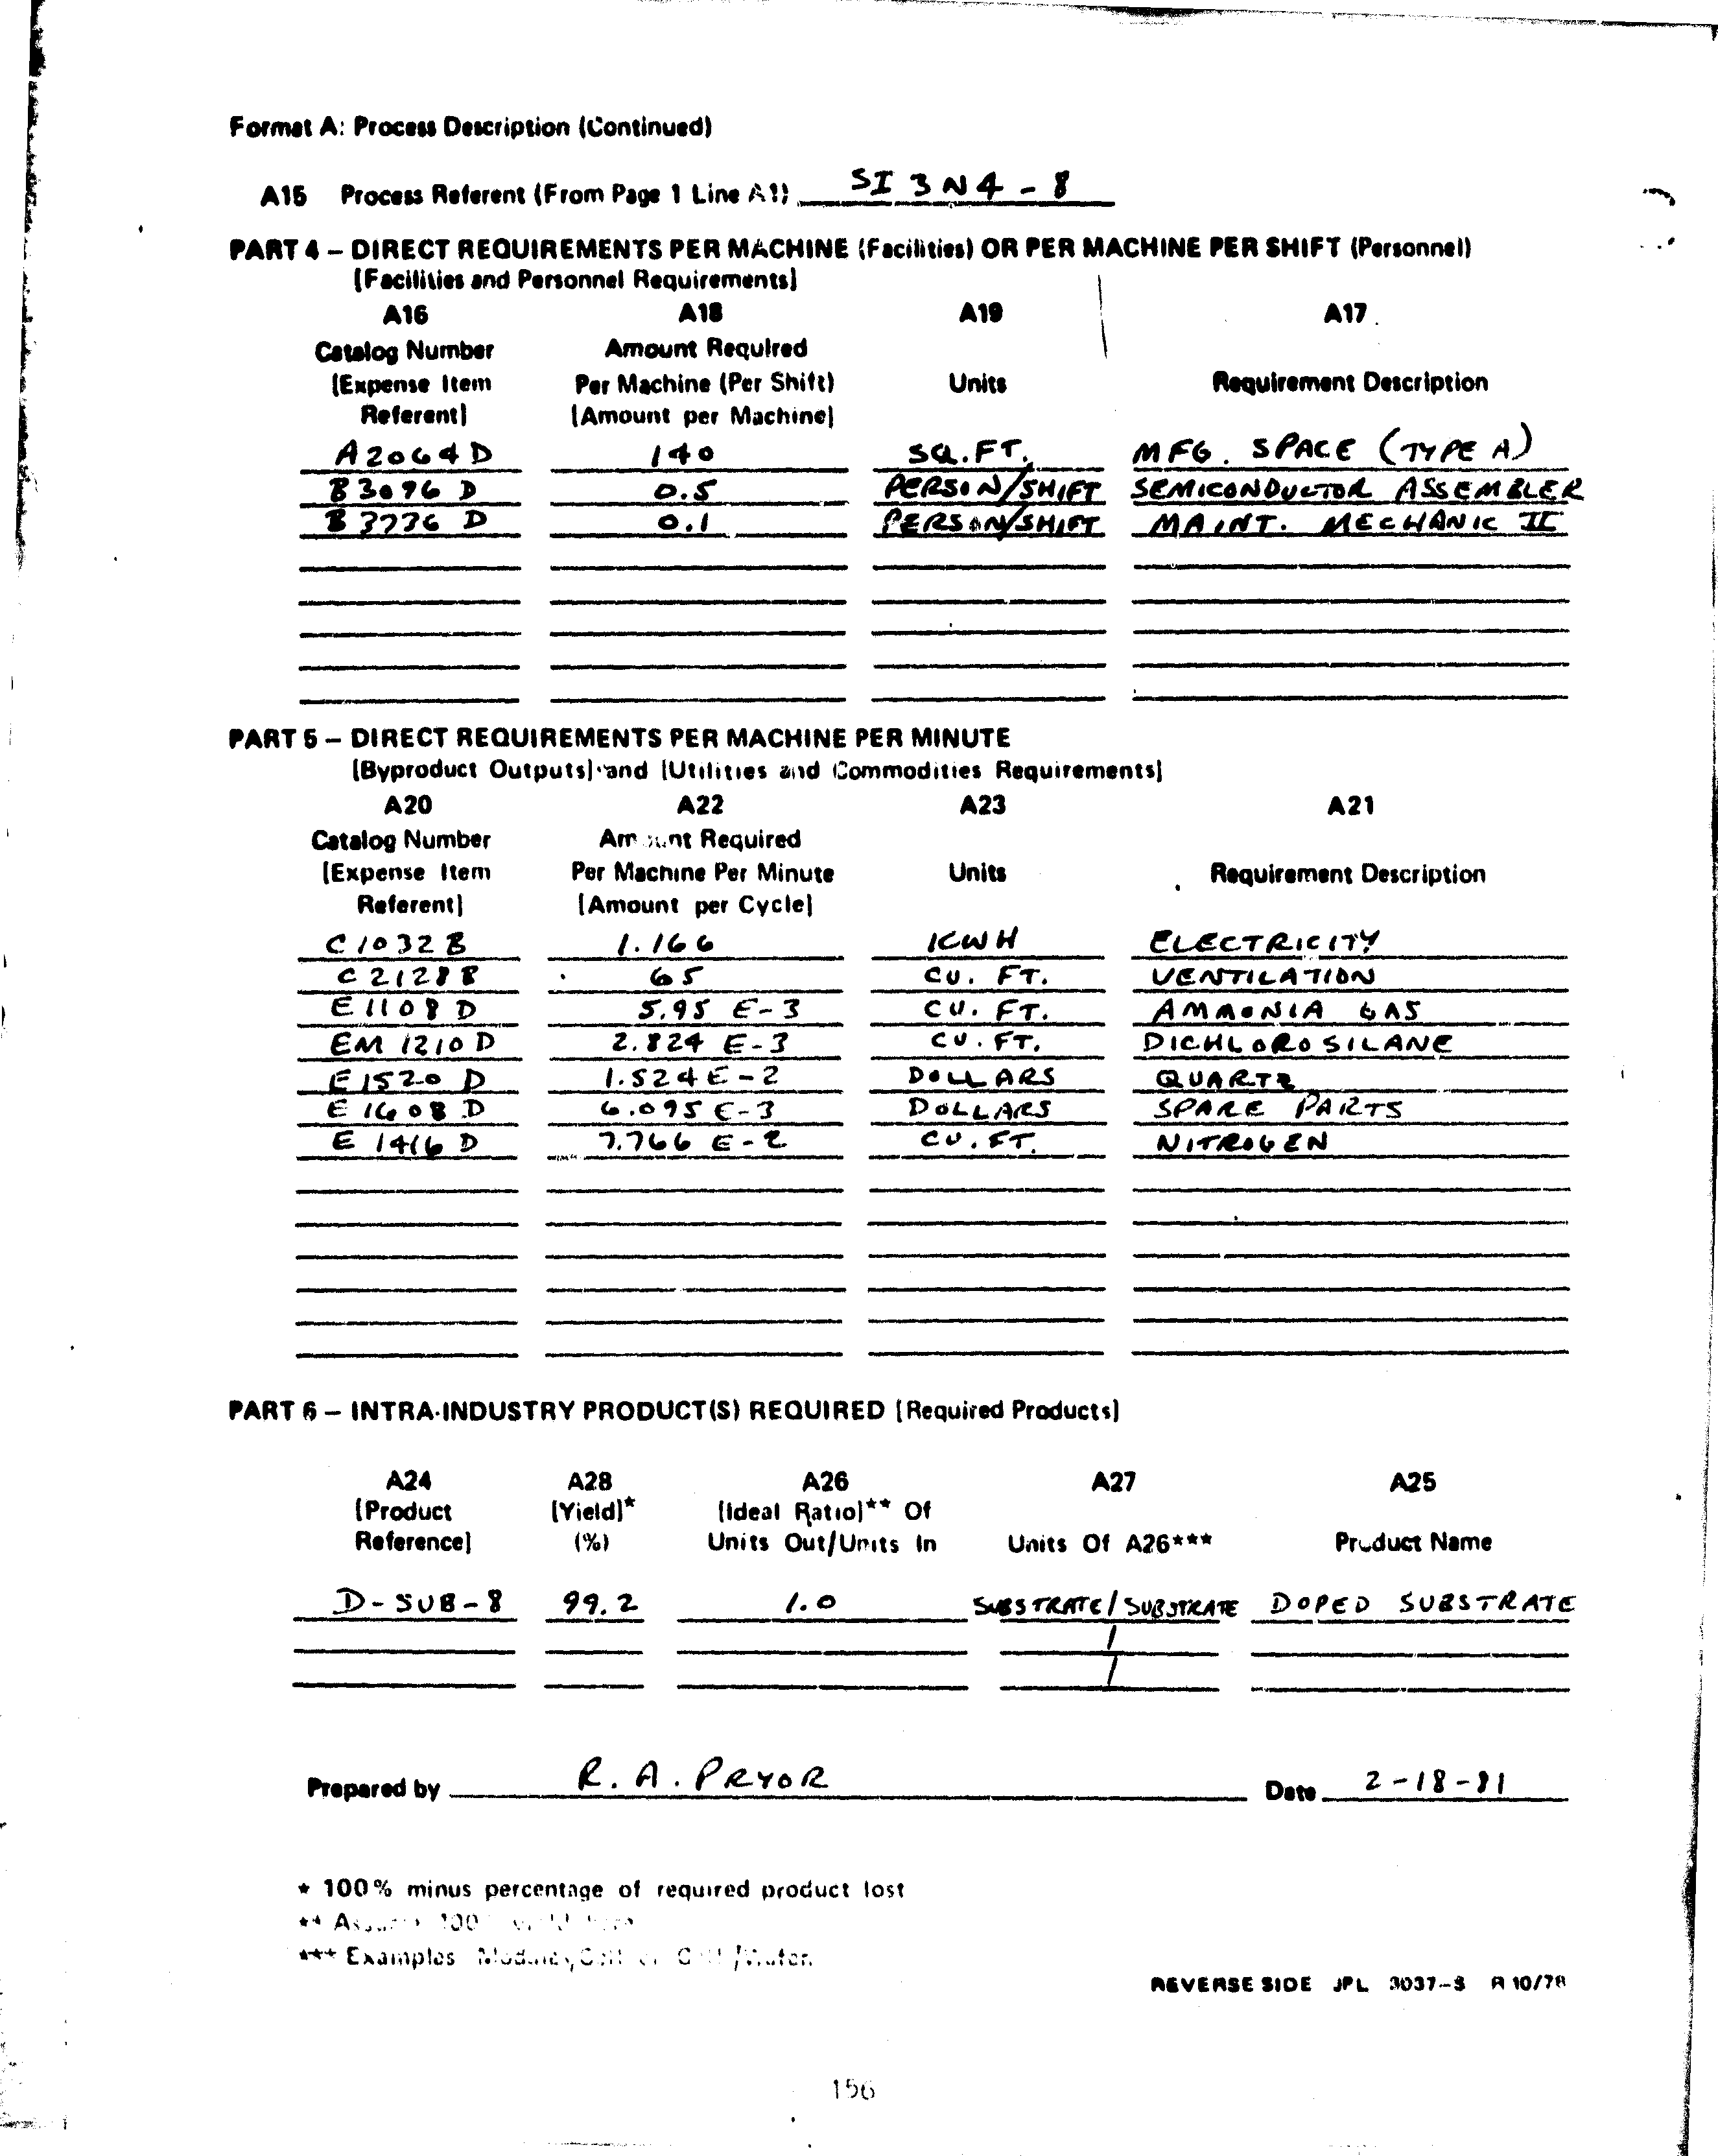 Format A: Process Description (Continued)
A15 Process Referent (From Page 1 Line A1) SI 3 N 4 - 8
PART 4 – DIRECT REQUIREMENTS PER MACHINE (Facilities) OR PER MACHINE PER SHIFT (Personnel)
[Facilities and Personnel Requirements]
A16 A18 A19 A17
Catalog Number Amount Required
[Expense Item Per Machine (Per Shift) Units Requirement Description
Referent] [Amount per Machine]
A2064D 140 SQ.FT. MFG. SPACE (TYPE A)
B3096 D 0.5 PERSON/SHIFT SEMICONDUCTOR ASSEMBLER
B3736 D 0.1 PERSON/SHIFT MAINT. MECHANIC II
PART 5 – DIRECT REQUIREMENTS PER MACHINE PER MINUTE
[Byproduct Outputs] and [Utilities and Commodities Requirements]
A20 A22 A23 A21
Catalog Number Amount Required
[Expense Item Per Machine Per Minute Units Requirement Description
Referent] [Amount per Cycle]
C1032B 1.166 KWH ELECTRICITY
C2128B 65 CU. FT. VENTILATION
E1108D 5.95 E-3 CU. FT. AMMONIA GAS
EM 1210 D 2.824 E-3 CU. FT. DICHLOROSILANE
E1520 D 1.524E-2 DOLLARS QUARTZ
E1608 D 6.095 E-3 DOLLARS SPARE PARTS
E 1416 D 7.766 E-2 CU.FT. NITROGEN
PART 6 – INTRA-INDUSTRY PRODUCT(S) REQUIRED [Required Products]
A24 A28 A26 A27 A25
[Product [Yield]* [Ideal Ratio]** Of
Reference] (%) Units Out/Units In Units Of A26*** Product Name
D-SUB-8 99.2 1.0 SUBSTRATE/SUBSTRATE DOPED SUBSTRATE
/
/
Prepared by R. A. PRYOR Date 2-18-81
* 100% minus percentage of required product lost
** 100
*** Examples
REVERSE SIDE JPL 3037-S R 10/78
156